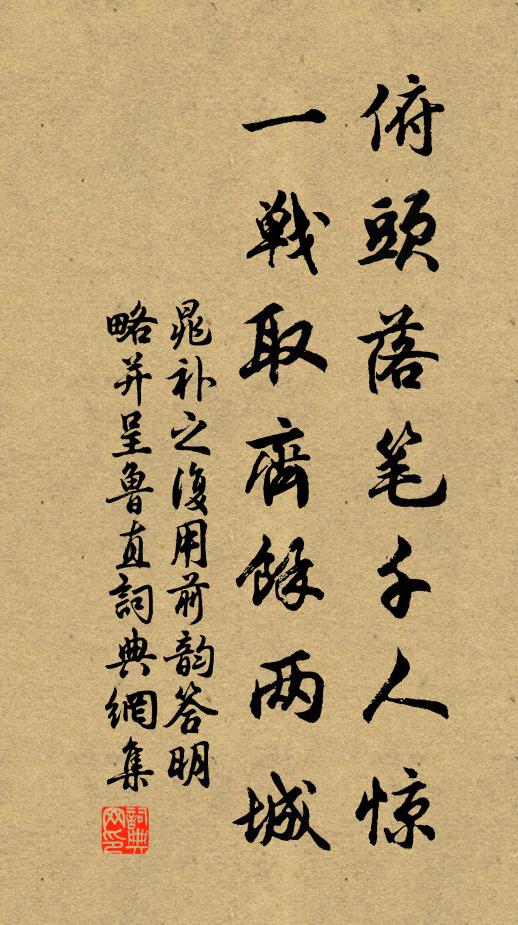 俯頭落笔千人惊
一戦取齊餘两城
晁补之復用前韵答明
略并呈魯直詞典網集
詞典网印